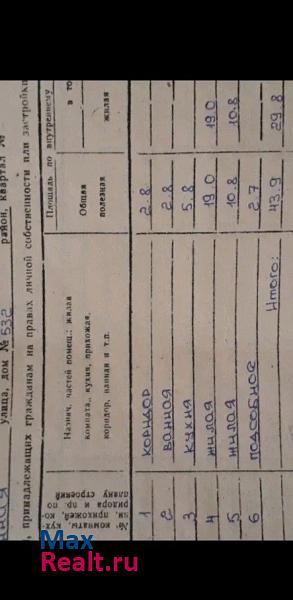 улица, дом № 532 район, квартал №
, принадлежащих гражданам на правах личной собственности или застройки
№ комнаты, кух.
ни, прихожей, ко-
ридора и пр. по
плану строений
Назнач. частей помещ.: жилая
комната, кухня, прихожая,
коридор, ванная и т.п.
Площадь по внутреннему
Общая
полезная
в то
жилая
1 коридор 2.8
2 ванная 2.8
3 кухня 5.8
4 жилая 19.0 19.0
5 жилая 10.8 10.8
6 подсобное 2.7
Итого: 43.9 29.8
Max
Realt.ru